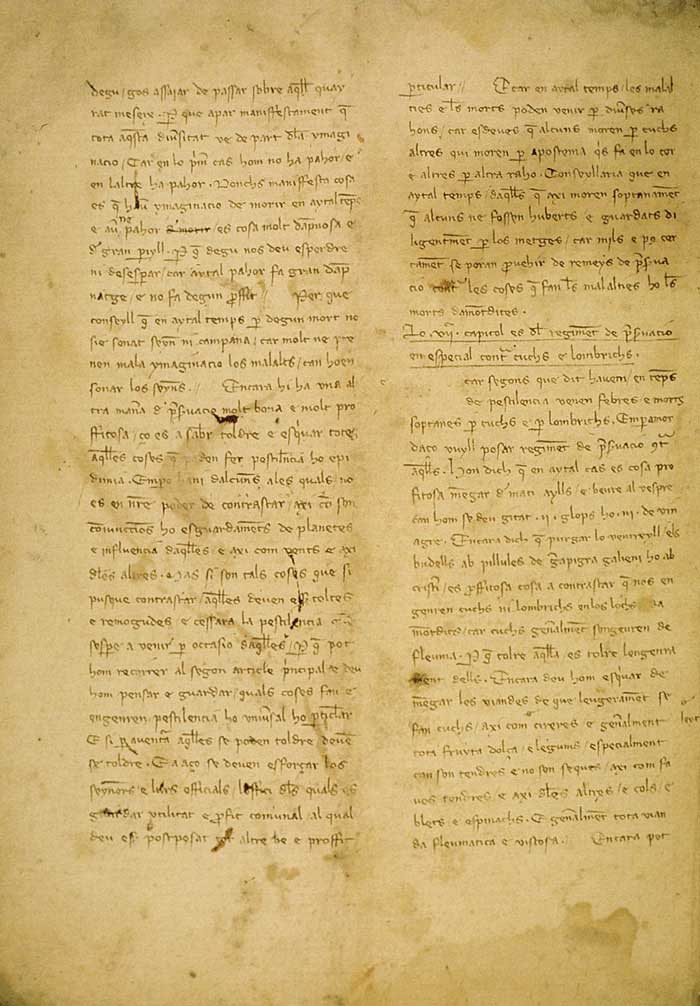 degu / gos assaiar de passar sobre aq̄ll quay
rat mesere. P̲ que apar maniffestament q̄
tota aq̄sta diũsitat ve de part dl̄a ymagi
nacio / Car en lo pm̄ cas hom no ha pahor / e
en laltre ha pahor. Donchs maniffesta cosa
es q̄ hau ymaginacio de morir en aytal tēps
e au ne pahor / es cosa molt dāpnosa e
d' gran piyll. P̲ q̄ degu nos deu esperdre
ni desesperar / car aytal pahor fa gran dāp
natge / e no fa degun p̱ffit // Per que
conseyll q̄ en aytal temps p̲ degun mort no
sie sonat seyn ni campana / car molt ne pre
nen mala ymaginacio los malalts / can hoen
sonar los seyns. // Encara hi ha vna al
tra maña d' p̄suacio molt bona e molt pro
ffitosa / ço es a sabr̄ toldre e esq̄uar totes
aq̄lles coses q̄ poden fer pestilēcia ho epi
dimia. Empo hani dalcuns ales quals no
es en nr̄e poder de contrastar / axi cō son
cōiunccions ho esguardamēts de planetes
e influencia daq̄lles / e axi com vents e axi
dl̄es altres. Mas si son tals coses que si
pusque contrastar / aq̄lles deuen eser toltes
e remogudes e cessara la pestilēcia
a venir p̲ occasio daq̄lles / P̲ q̄ pot
hom recorrer al segon article p̄ncipal e deu
hom pensar e guardar / quals coses fan e
engenren pestilēcia ho vniũsal ho p̲ticl̄ar
E si p̲ auentã aq̄lles se poden toldre / deuē
se toldre. E a aço se deuen esforçar los
seyñors e lurs officials / loffici dl̄s quals es
guardar vtilitat e p̱fit comunal / al qual
deu esser postposat tot altre be e proffit
p̲ticular // E car en aytal temps / les malal
ties e ls̄ morts poden venir p̲ diũses ra
hons / car esdeues q̄ alcuns moren p̲ cuchs
altres qui moren p̲ apostema q̄s fa en lo cor
e altres p̲ altra raho. Consellaria que en
aytal temps / daq̄lls q̄ axi moren soptanamēt
q̄ alcuns ne fossen huberts e guardats di
ligentmēt p̲ los metges / car mils e pus cer
tamēt se poran p̱uehir de remeys de p̄sua
cio contr̄ les coses q̄ fan ls̄ malalties ho ls̄
morts damontdites.
Lo . vii. capitol es dl̄ regimēt de p̄suacio
en especial contr̄ cuchs e lombrichs.
car segons que dit hauem / en tēps
de pestilencia venen febres e morts
soptanes p̲ cuchs e p̲ lombrichs. Empamor
daço vuyll posar regimēt de p̄suacio cōtr̄
aq̄lls. Hon dich q̄ en aytal cas es cosa pro
fitosa mēgar d' mati aylls / e beure al vespre
can hom se deu gitar . ii . glops ho . iii . de vin
agre. Encara dich q̄ purgar lo ventreyll / els
budells ab pillules de gapigra galieni ho ab
cristiri / es p̱ffitosa cosa a contrastar q̄ nos en
genren cuchs ni lombrichs en los lochs
mordits / car cuchs genal̄mēt sengenren de
fleuma. P̲ q̄ tolre aq̄lla / es tolre lengenra
ment dells. Encara deu hom esq̄uar de
mēgar les viandes de que leugeramēt se
fan cuchs / axi com cireres e genal̄ment
tota fruyta dolça / e legums / especialment
can son tendres e no son sequts / axi com fa
ues tendres e axi dl̄es altres / e cols / e
blets e espinachs. E genal̄mēt tota vian
da fleumatica e viscosa. Encara pot